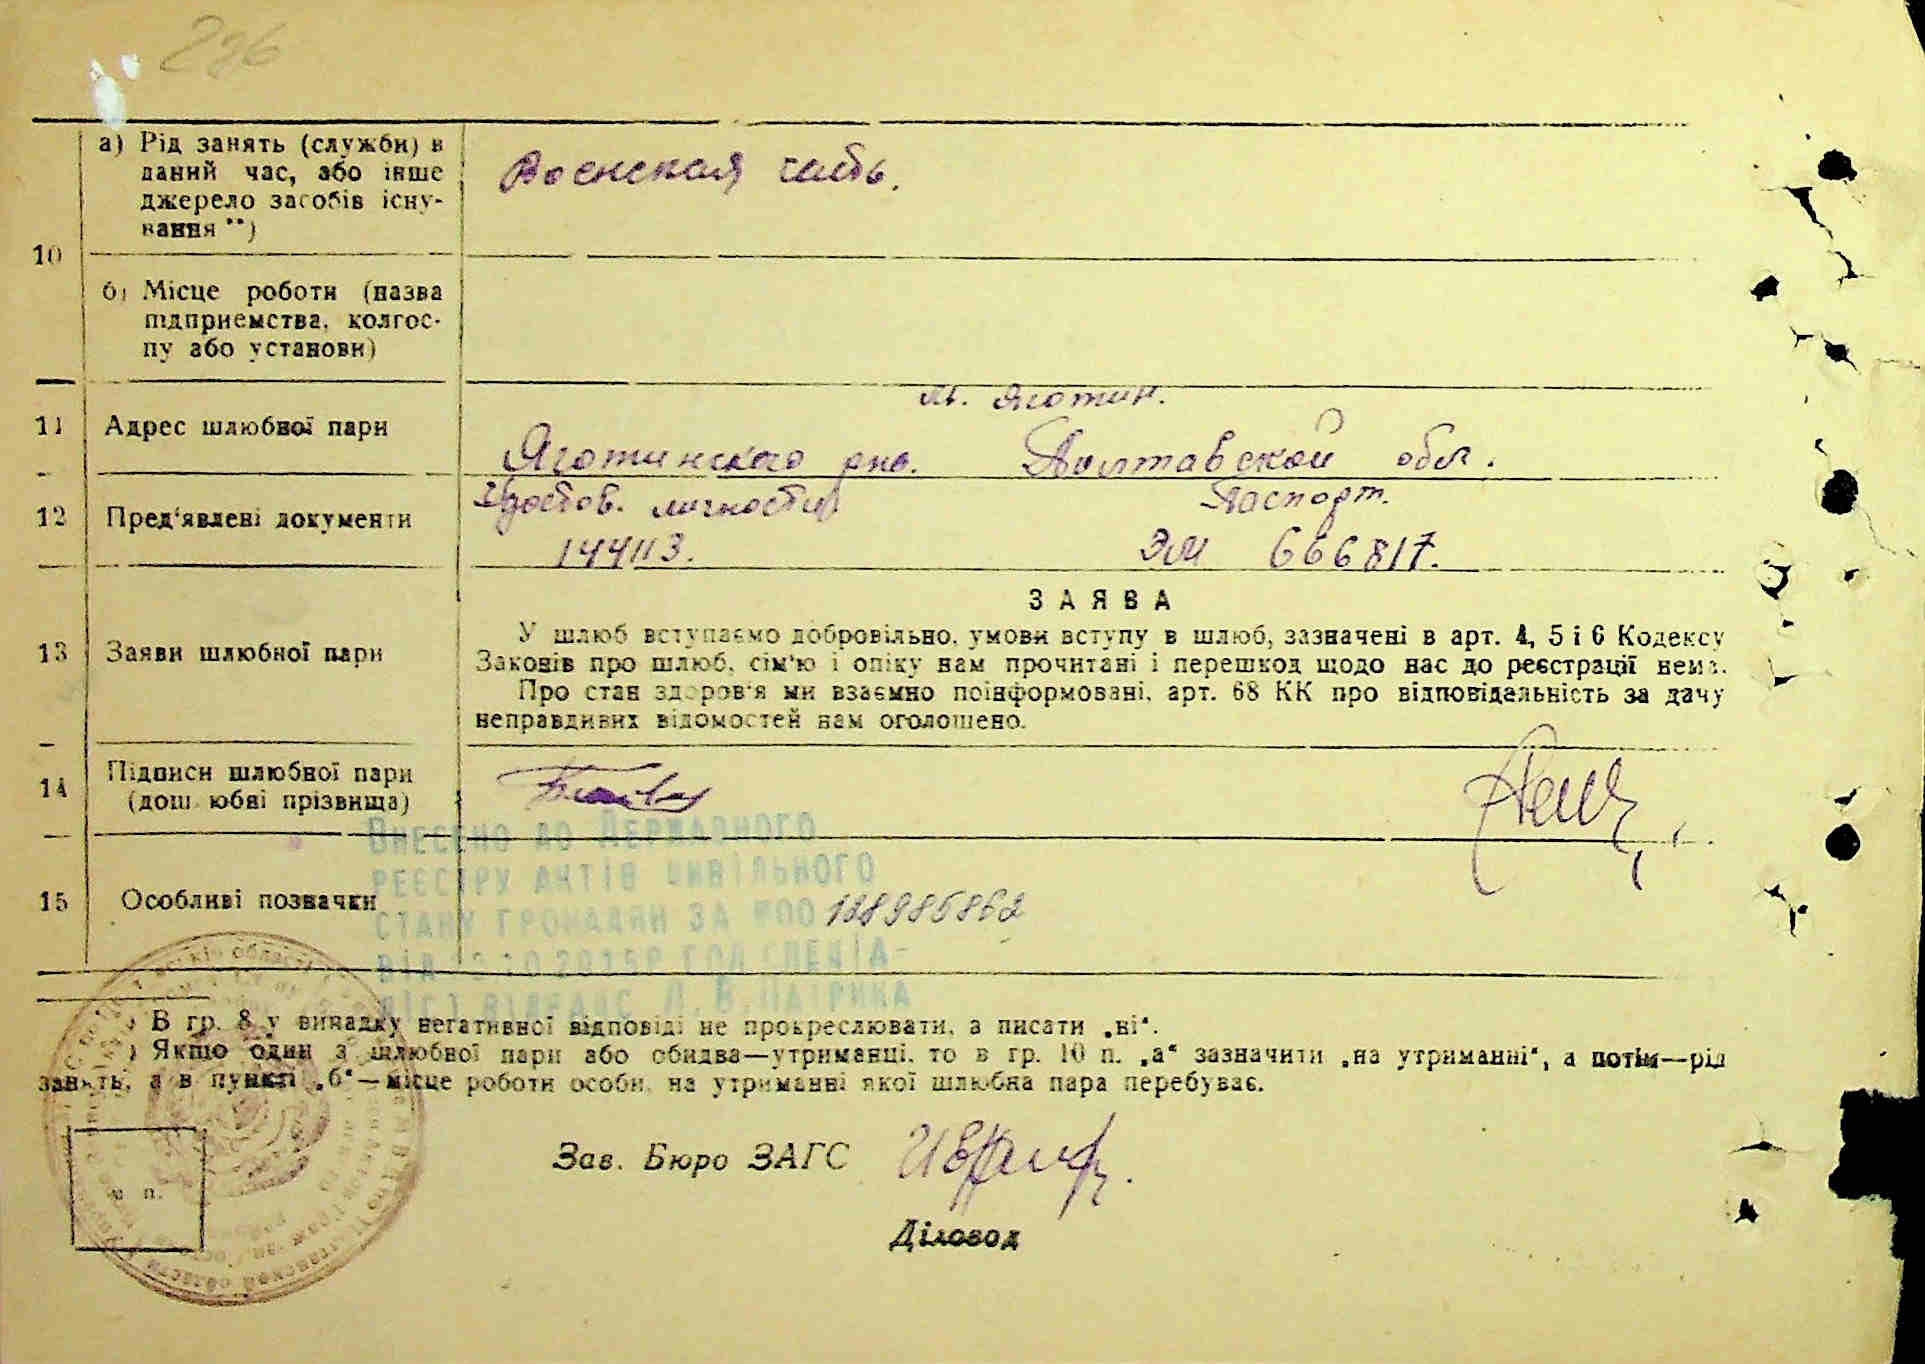 236
а) Рід занять (служби) в
даний час, або інше
джерело засобів існу-
вання **)
Воєнская часть.
10
б) Місце роботи (назва
підприємства, колгос-
пу або установи)
м. Яготин.
11 Адрес шлюбної пари
Яготинского рно. Полтавской обл.
12 Пред'явлені документи
Удостов. личности Паспорт.
144113. ЭМ 666817.
ЗАЯВА
13 Заяви шлюбної пари
У шлюб вступаємо добровільно, умови вступу в шлюб, зазначені в арт. 4, 5 і 6 Кодексу
Законів про шлюб, сім'ю і опіку нам прочитані і перешкод щодо нас до реєстрації нема.
Про стан здоров'я ми взаємно поінформовані, арт. 68 КК про відповідальність за дачу
неправдивих відомостей нам оголошено.
14 Підписи шлюбної пари
(дошлюбні прізвища)
Внесено до Державного
реєстру актів цивільного
15 Особливі позначки
стану громадян за №00128985862
від 10.2015р гол.спеціа-
ліст відрацс Л.В.Патрика
) В гр. 8 у випадку негативної відповіді не прокреслювати, а писати „ні“.
) Якщо один з шлюбної пари або обидва—утриманці, то в гр. 10 п. „а“ зазначити „на утриманні“, а потім—рід
занять, а в пункті „б“—місце роботи особи, на утриманні якої шлюбна пара перебуває.
Зав. Бюро ЗАГС
м п.
Діловод